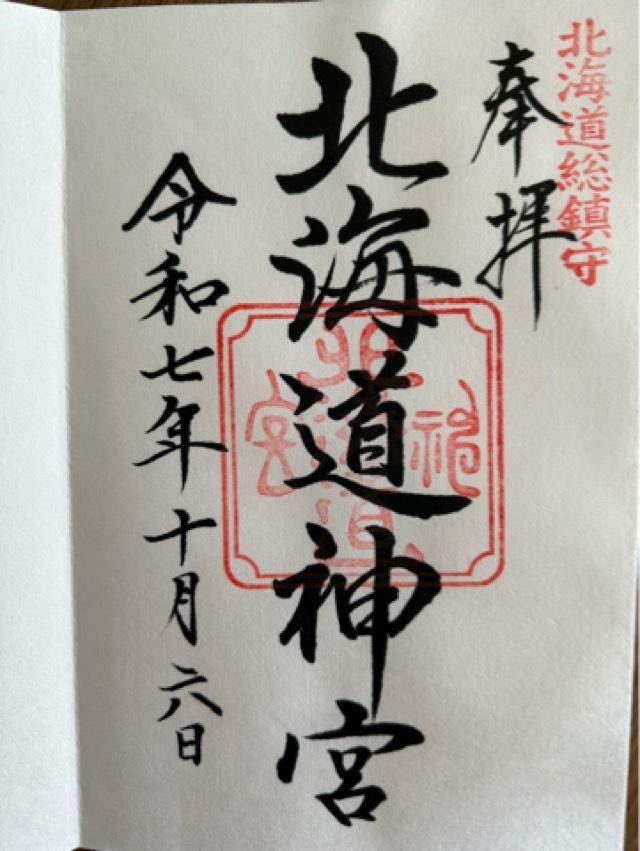 北海道総鎮守
奉拝
北海道神宮
北海道神宮
令和七年十月六日